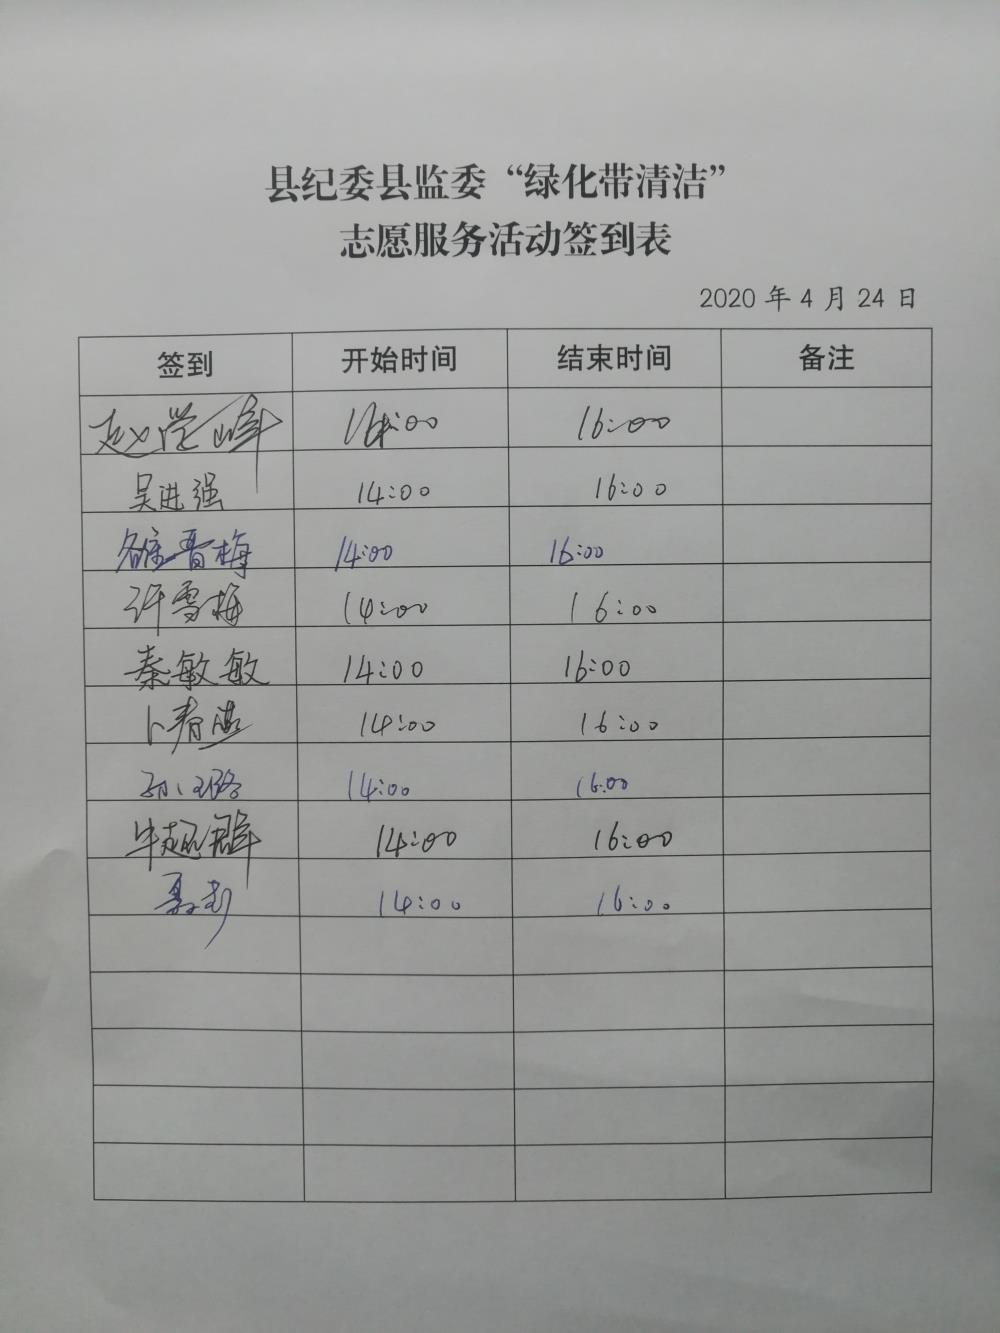 县纪委县监委“绿化带清洁”
志愿服务活动签到表
2020 年 4 月 24 日
签到 开始时间 结束时间 备注
赵学峰 14:00 16:00
吴进强 14:00 16:00
晋梅 14:00 16:00
许雪梅 14:00 16:00
秦敏敏 14:00 16:00
卜青 14:00 16:00
14:00 16:00
牛超群 14:00 16:00
14:00 16:00